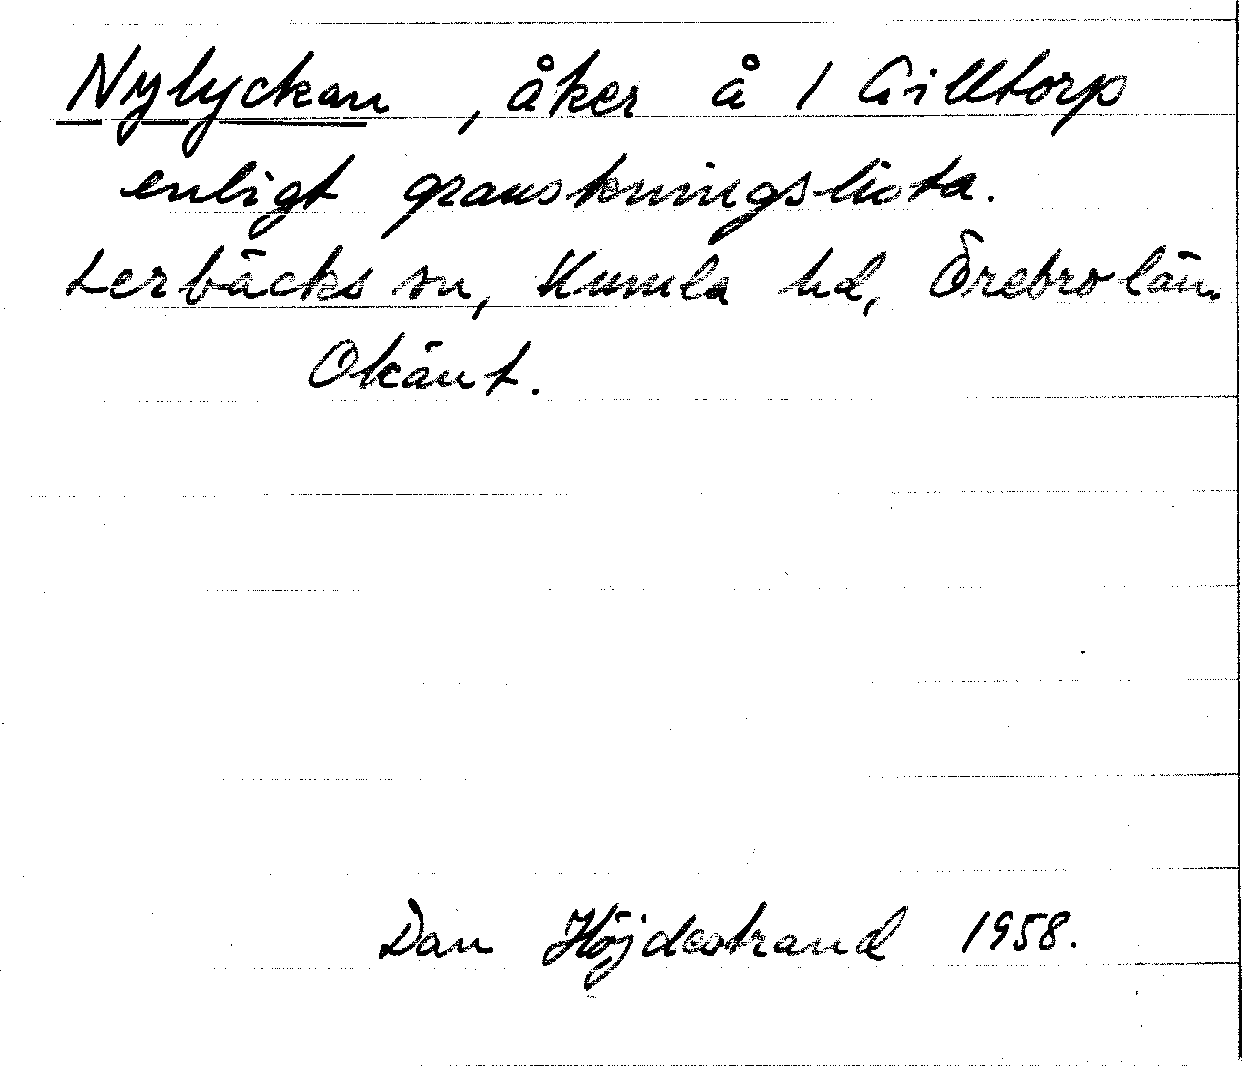 Nylyckan, åker å 1 Gilltorp
enligt granskningslista.
Lerbäcks sn, Kumla hd, Örebro län.
Okänt.
Dan Höjdestrand 1958.